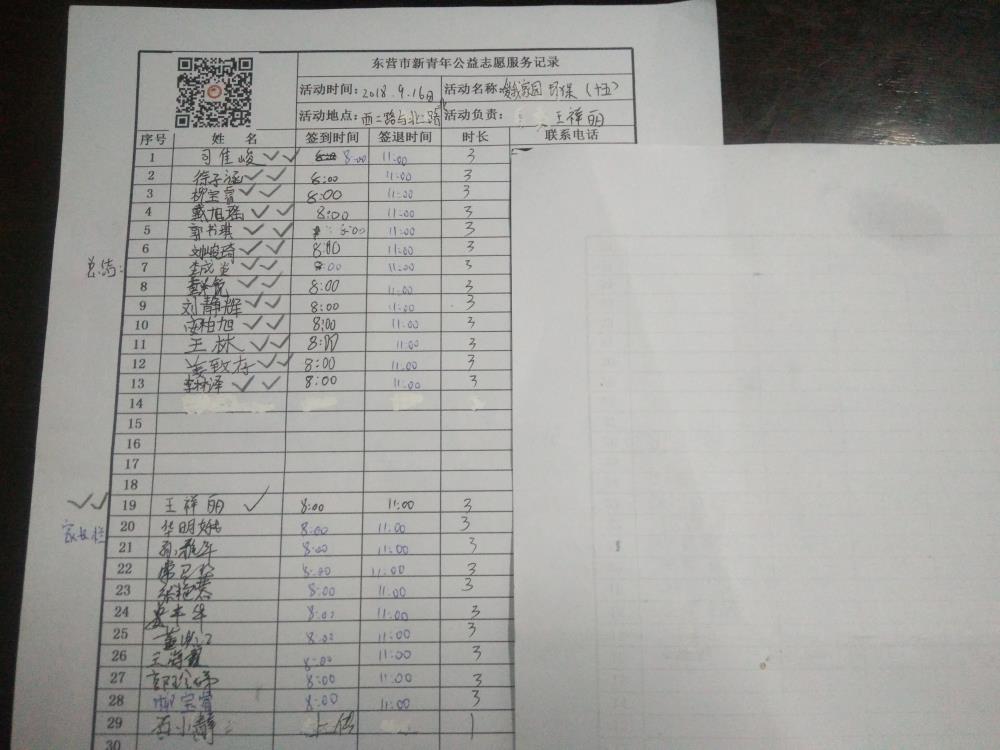 东营市新青年公益志愿服务记录
活动时间: 2018.9.16日 活动名称: 家园 环保 (十五)
活动地点: 西二路与北二路 活动负责: 王祥丽
序号 姓 名 签到时间 签退时间 时长 联系电话
1 司佳峻 8:00 11:00 3
2 徐子涵 8:00 11:00 3
3 柳宝睿 8:00 11:00 3
4 戴旭瑶 8:00 11:00 3
5 郭书琪 8:00 11:00 3
6 刘峻琦 8:00 11:00 3
总结:
7 8:00 11:00 3
8 8:00 11:00 3
9 刘静辉 8:00 11:00 3
10 安柏旭 8:00 11:00 3
11 王林 8:00 11:00 3
12 姜致存 8:00 11:00 3
13 李林泽 8:00 11:00 3
14
15
16
17
18
19 王祥丽 8:00 11:00 3
20 华明 8:00 11:00 3
家长栏
21 8:00 11:00 3
22 8:00 11:00 3
23 8:00 11:00 3
24 8:00 11:00 3
25 8:00 11:00 3
26 王海霞 8:00 11:00 3
27 8:00 11:00 3
28 柳宝睿 8:00 11:00 3
29 石小静 上传
30